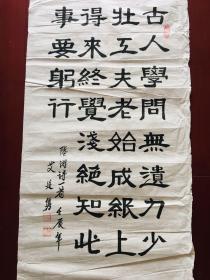 古人學問無遺力少
壯工夫老始成紙上
得來終覺淺絕知此
事要躬行
陸游詩一首 壬辰年